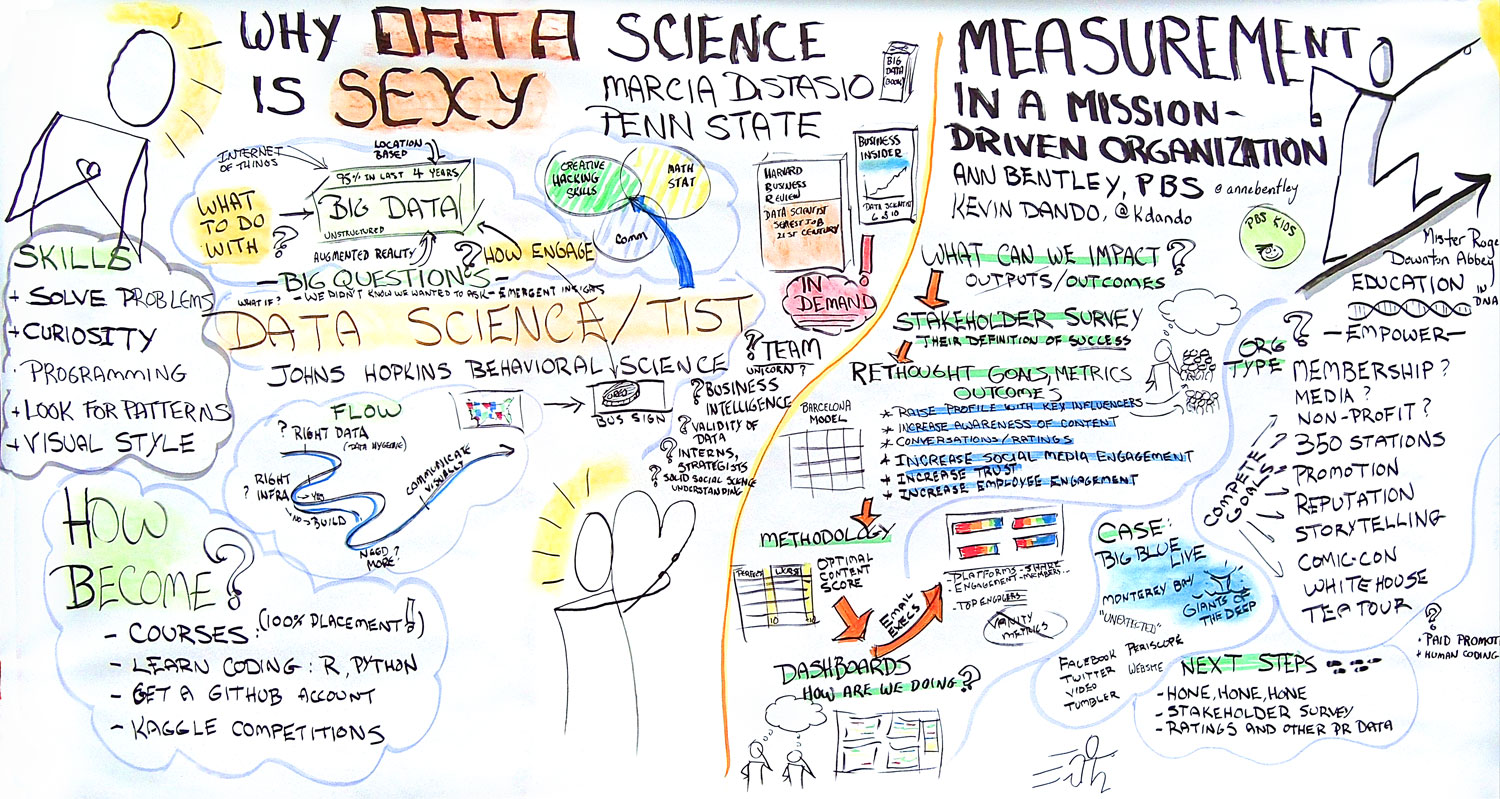 WHY DATA SCIENCE
IS SEXY
MARCIA DISTASIO
PENN STATE
BIG
DATA
(BOOK)
INTERNET
OF THINGS
LOCATION
BASED
95% IN LAST 4 YEARS
BIG DATA
UNSTRUCTURED
AUGMENTED REALITY
WHAT
TO DO
WITH ?
? HOW ENGAGE
CREATIVE
HACKING
SKILLS
MATH
STAT
Comm
HARVARD
BUSINESS
REVIEW
DATA SCIENTIST
SEXIEST JOB
21ST CENTURY
BUSINESS
INSIDER
DATA SCIENTIST
IN
DEMAND
!
- BIG QUESTIONS -
WHAT IF? - WE DIDN'T KNOW WE WANTED TO ASK - EMERGENT INSIGHTS
DATA SCIENCE/TIST
JOHNS HOPKINS BEHAVIORAL SCIENCE
SKILLS
+ SOLVE PROBLEMS
+ CURIOSITY
· PROGRAMMING
+ LOOK FOR PATTERNS
+ VISUAL STYLE
FLOW
? RIGHT DATA
(DATA HYGIENE)
RIGHT
? INFRA
YES
NO → BUILD
NEED ?
MORE
COMMUNICATE
VISUALLY
BUS SIGN
? TEAM
UNICORN ?
? BUSINESS
INTELLIGENCE
? VALIDITY OF
DATA
? INTERNS,
STRATEGISTS
? SOLID SOCIAL SCIENCE
UNDERSTANDING
HOW
BECOME ?
- COURSES: (100% PLACEMENT!)
- LEARN CODING: R, PYTHON
- GET A GITHUB ACCOUNT
- KAGGLE COMPETITIONS
MEASUREMENT
IN A MISSION-
DRIVEN ORGANIZATION
ANN BENTLEY, PBS @annebentley
KEVIN DANDO, @kdando
PBS KIDS
WHAT CAN WE IMPACT ?
OUTPUTS/OUTCOMES
STAKEHOLDER SURVEY
THEIR DEFINITION OF SUCCESS
RETHOUGHT GOALS, METRICS
OUTCOMES
* RAISE PROFILE WITH KEY INFLUENCERS
* INCREASE AWARENESS OF CONTENT
* CONVERSATIONS/RATINGS
* INCREASE SOCIAL MEDIA ENGAGEMENT
* INCREASE TRUST
* INCREASE EMPLOYEE ENGAGEMENT
BARCELONA
MODEL
METHODOLOGY
PERFECT
WORST
10
10
OPTIMAL
CONTENT
SCORE
EMAIL
EXECS
- PLATFORMS - SHARE
- ENGAGEMENT - MEMBERS...
- TOP ENGAGERS
VANITY
METRICS
DASHBOARDS
HOW ARE WE DOING ?
Mister Roge
Downton Abbey
EDUCATION
IN
DNA
- EMPOWER -
ORG ?
TYPE
MEMBERSHIP ?
MEDIA ?
NON-PROFIT ?
350 STATIONS
PROMOTION
REPUTATION
STORYTELLING
COMIC-CON
WHITE HOUSE
TEA TOUR
COMPETE
GOALS
?
+ PAID PROMOT
+ HUMAN CODING
CASE:
BIG BLUE LIVE
MONTEREY BAY
GIANTS OF
THE DEEP
"UNEXPECTED"
FACEBOOK PERISCOPE
TWITTER WEBSITE
VIDEO
TUMBLER
NEXT STEPS
- HONE, HONE, HONE
- STAKEHOLDER SURVEY
- RATINGS AND OTHER PR DATA